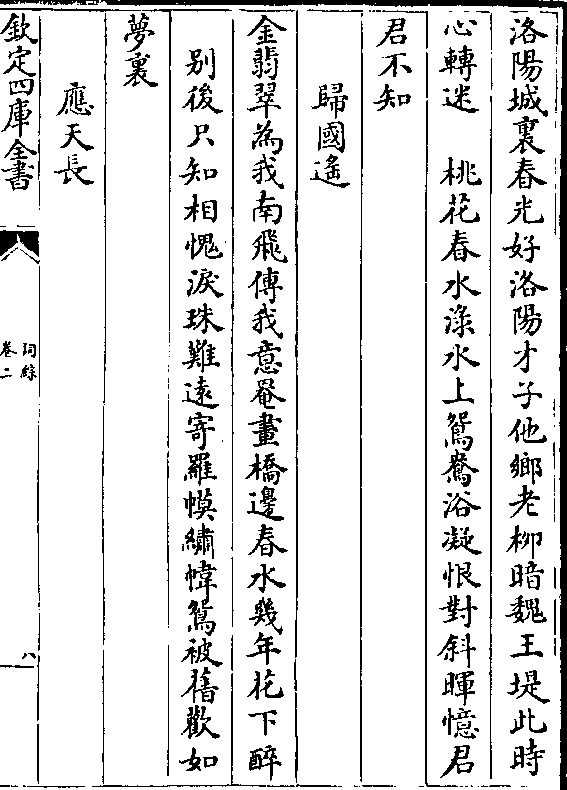 洛陽城裏春光好洛陽才子他鄉老柳暗魏王堤此時
心轉迷　桃花春水淥水上鴛鴦浴凝恨對斜暉憶君
君不知
歸國遙
金翡翠為我南飛傳我意罨畫橋邊春水幾年花下醉
別後只知相愧淚珠難遠寄羅幙繡幃鴛被舊歡如
夢裏
應天長
欽定四庫全書
詞綜
卷二
八